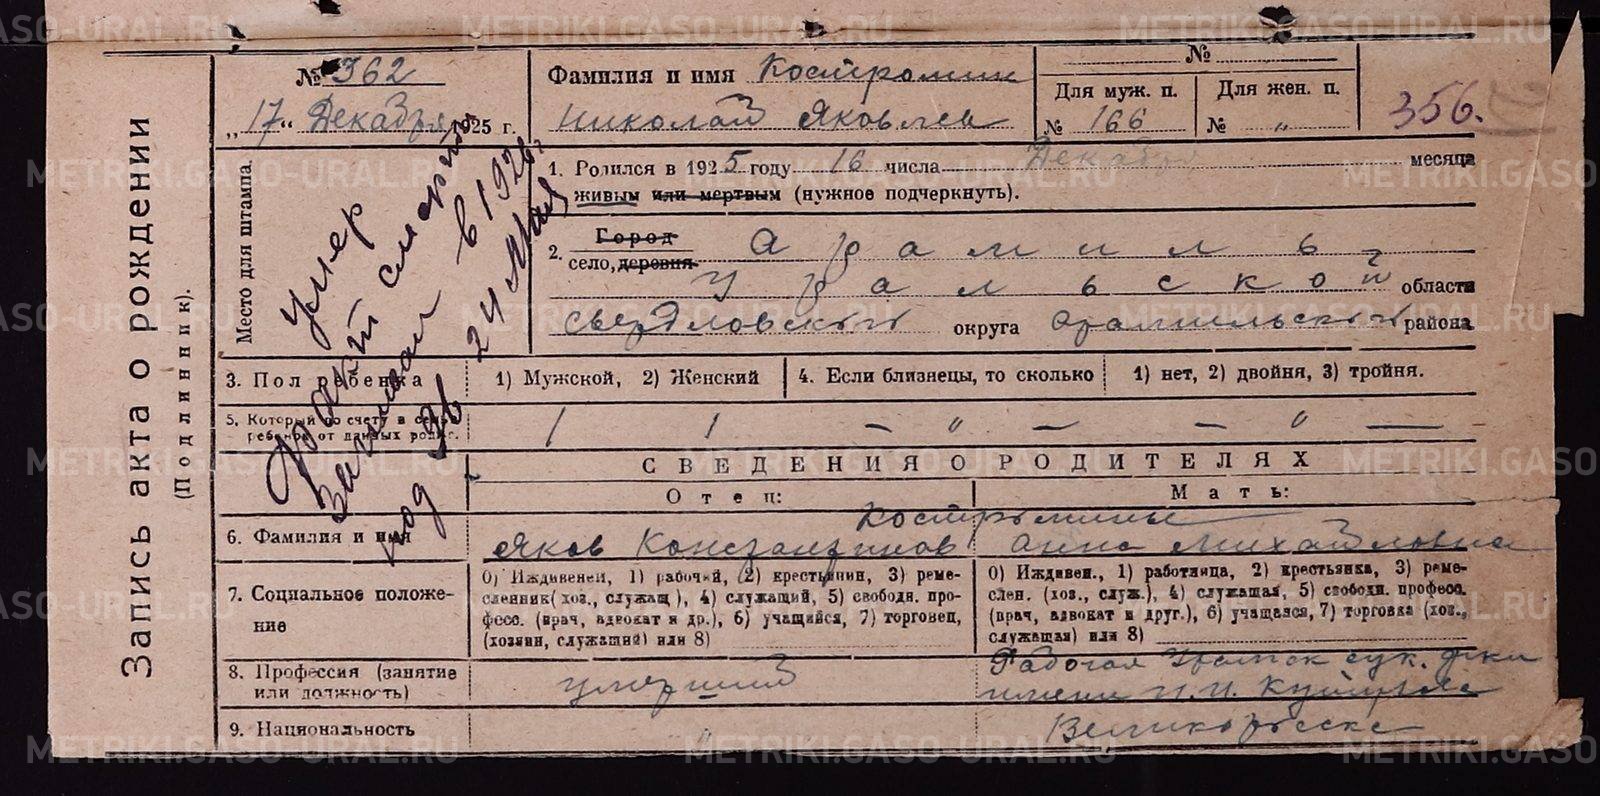 Запись акта о рождении
(Подлинник).
№ 362
„17" Декабря 1925 г.
Место для штампа.
Умер
Факт смерти
записан в 1926 г.
под № 24 Мая
Фамилия и имя Костромин
Николай Яковлев
№
Для муж. п. Для жен. п.
№ 166 № „
356.
1. Родился в 1925 году 16 числа Декабря месяца
живым или мертвым (нужное подчеркнуть).
2. Город
село, деревня Арамиль
Уральской области
Свердловский округа Арамильский района
3. Пол ребенка 1) Мужской, 2) Женский 4. Если близнецы, то сколько 1) нет, 2) двойня, 3) тройня.
5. Который по счету в семье
ребенок от данных родит. 1 1 — „ — — „ —
СВЕДЕНИЯ О РОДИТЕЛЯХ
Отец: Мать:
Костромины
6. Фамилия и имя Яков Константинов Анна Михайловна
7. Социальное положение
0) Иждивенец, 1) рабочий, 2) крестьянин, 3) реме-
сленник (хоз., служащ), 4) служащий, 5) свободн. про-
фесс. (врач, адвокат и др.), 6) учащийся, 7) торговец,
(хозяин, служащий) или 8)
0) Иждивен., 1) работница, 2) крестьянка, 3) реме-
слен. (хоз., служ.), 4) служащая, 5) свободн. професс.
(врач, адвокат и друг.), 6) учащаяся, 7) торговка (хоз.,
служащая) или 8)
8. Профессия (занятие
или должность) умерший
Рабочая сук. ф-ки
имени
9. Национальность „ Великорусска
METRIKI.GASO-URAL.RU